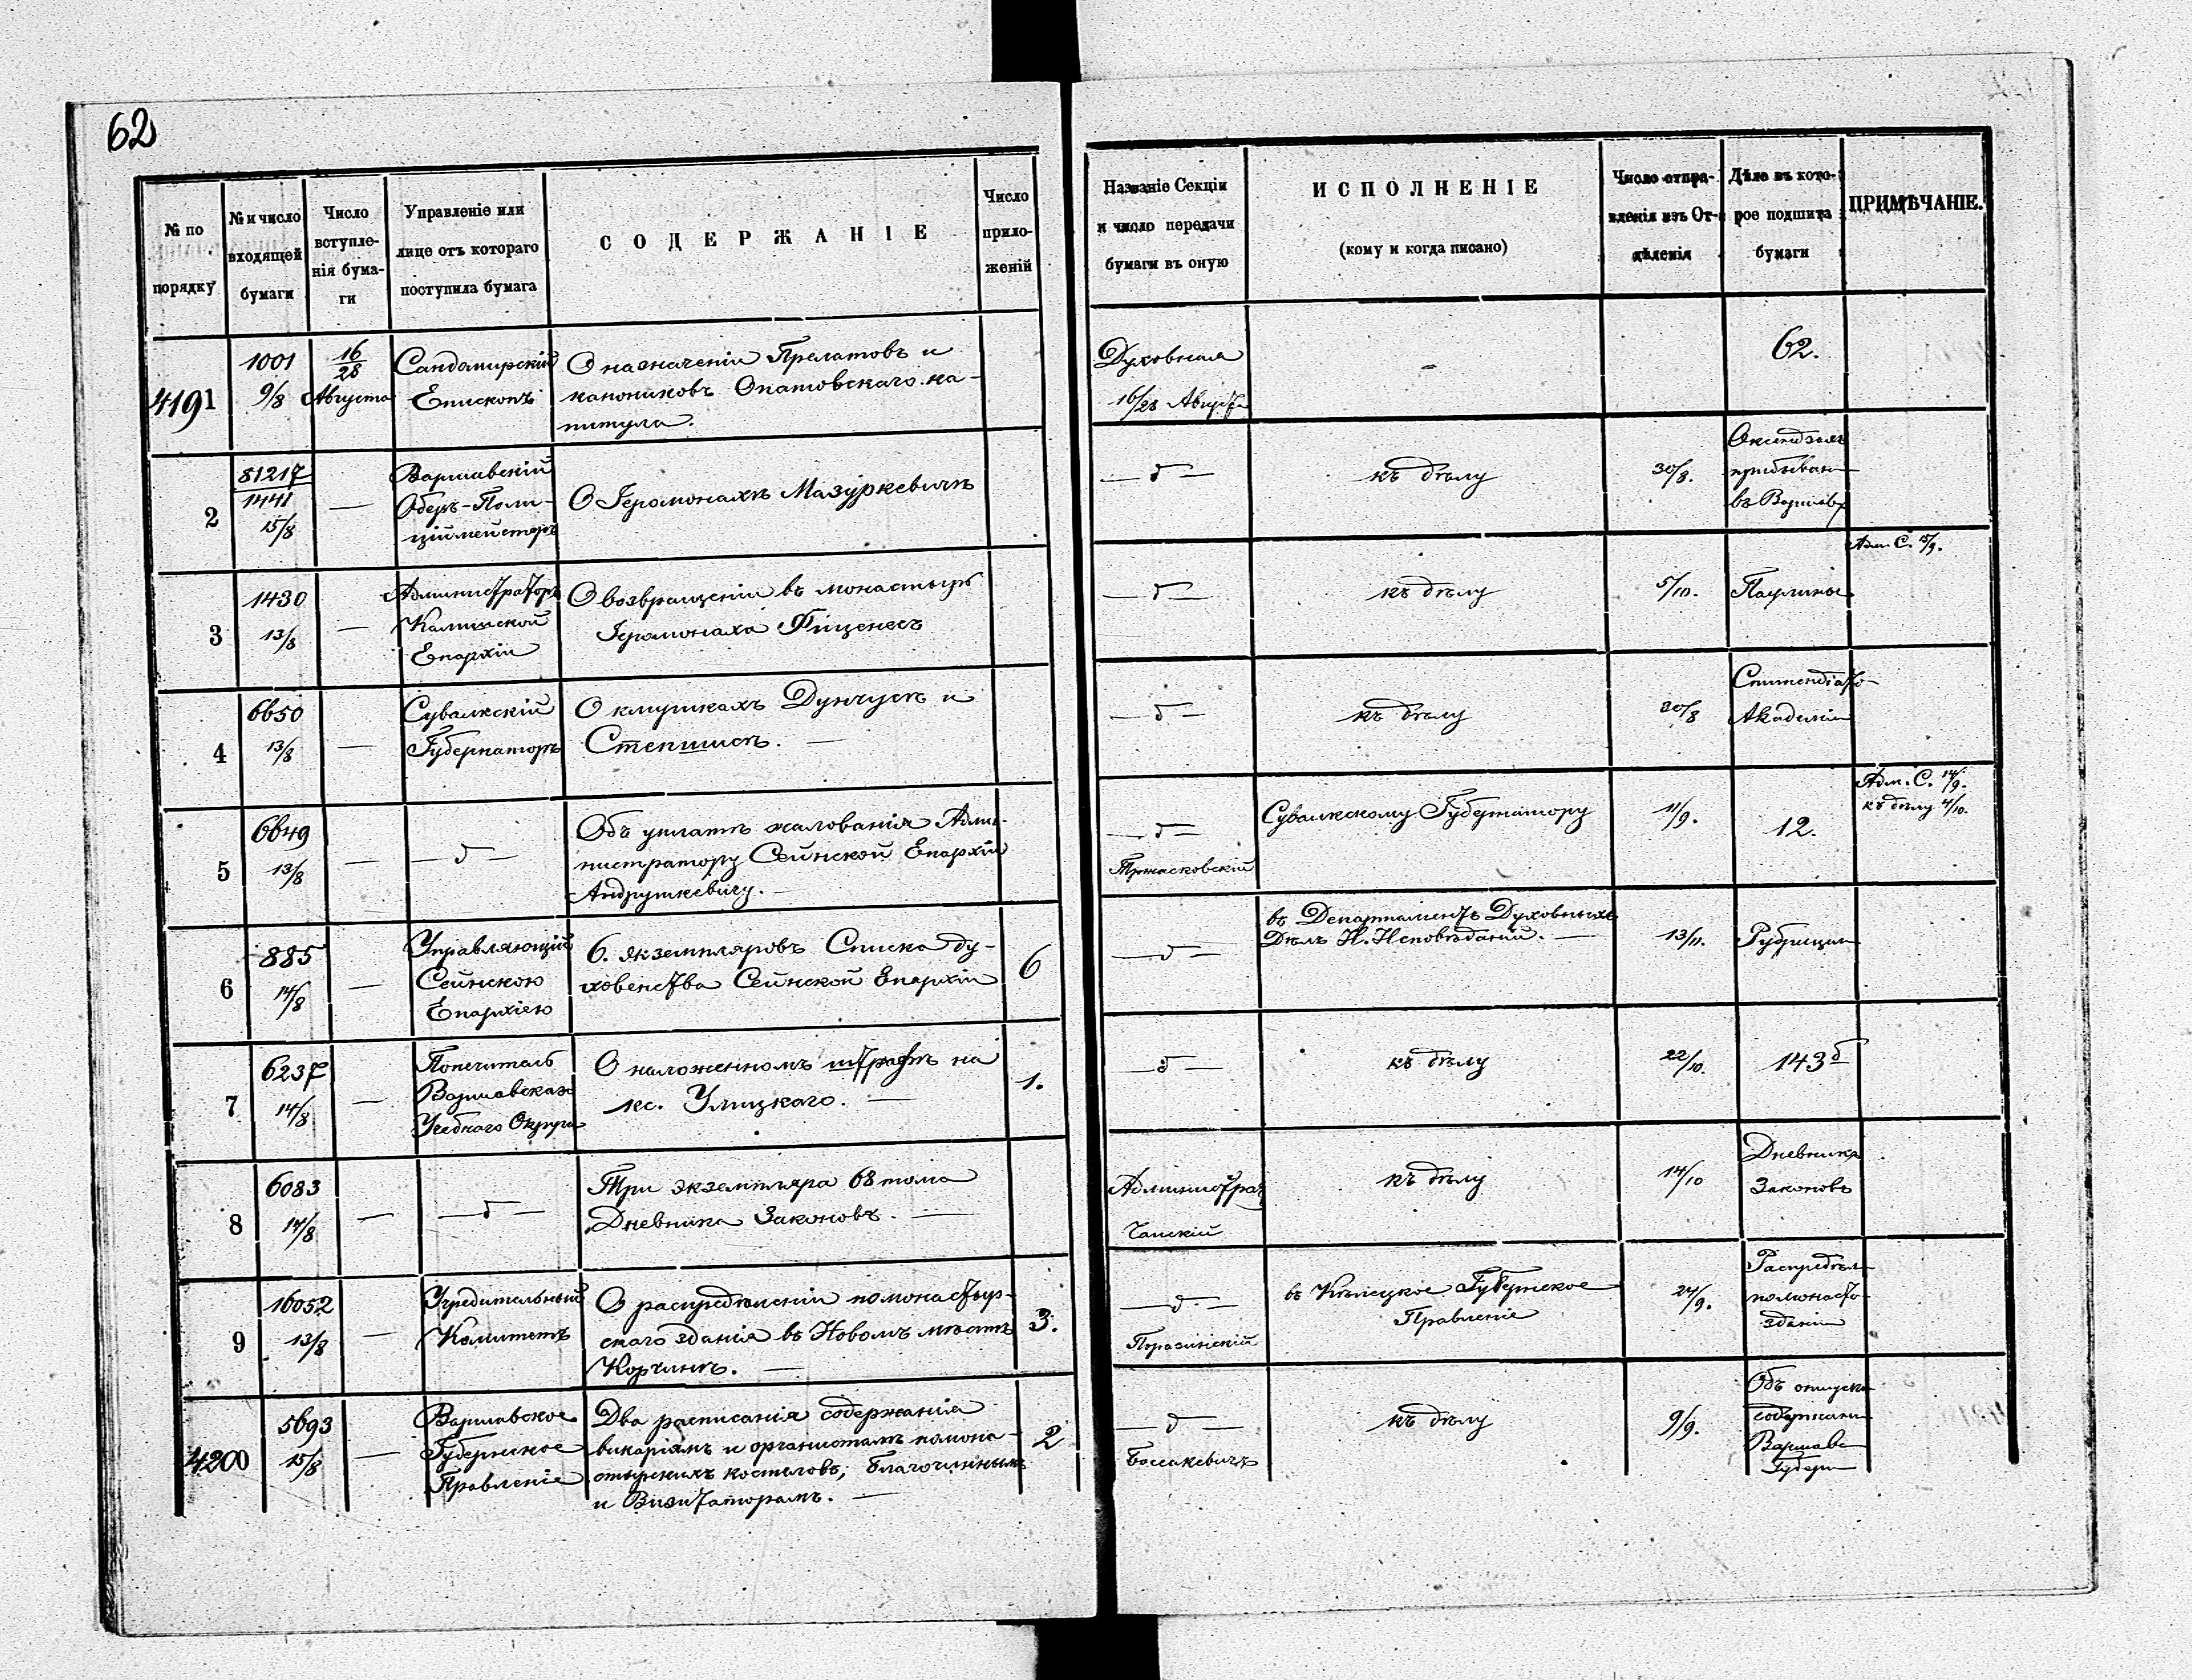 62
№ по порядку
№ и число входящей бумаги
Число вступле-нія бума-ги
Управленіе или лице отъ котораго поступила бумага
СОДЕРЖАНІЕ
Число прило-женій
Названіе Секціи и число передачи бумаги въ оную
ИСПОЛНЕНІЕ
(кому и когда писано)
Число отпра-вленія изъ От-дѣленія
Дѣло въ кото-рое подшита бумаги
ПРИМѢЧАНІЕ.
4191
1001
9/8
16/28
Августа
Сандомирскій
Епископъ
О назначеніи Прелатовъ и
канониковъ Опатовскаго ка-
питула.
Духовная
16/28 Августа
62.
2
81217
1441
15/8
—
Варшавскій
Оберъ-Поли-
цiймейстеръ
О Іеромонахѣ Мазуркевичѣ
— д —
къ дѣлу
30/8.
въ Варшавѣ
3
1430
13/8
—
Администраторъ
Калишской
Епархіи
О возвращеніи въ монастырь
Іеромонаха
— д —
къ дѣлу
5/10.
Паулины
Адм. С. 15/9.
4
6650
13/8
—
Сувалкскій
Губернаторъ
О клирикахъ и
— д —
къ дѣлу
30/8
Академіи
5
6649
13/8
—
— д —
Объ уплатѣ жалованія Адми-
нистратору Сейнской Епархіи
Андрушкевичу. —
— д —
Тржасковскій
Сувалкскому Губернатору
11/9.
12.
Адм. С. 14/9.
къ дѣлу 4/10.
6
885
14/8
—
Управляющій
Сейнскою
Епархіею
6. экземпляровъ Списка ду-
ховенства Сейнской Епархіи
6
— д —
въ Департаментъ Духовныхъ
Дѣлъ И. Исповѣданій. —
13/11.
Рубрицели
7
6237
14/8
—
Попечитель
Варшавскаго
Учебнаго Округа
О наложенномъ штрафѣ на
кс. Улицкаго. —
1.
— д —
къ дѣлу
22/10.
143 д
8
6083
14/8
—
— д —
Три экземпляра 68 тома
Дневника Законовъ. —
Администрат
Чапскій
къ дѣлу
14/10
Дневника
Законовъ
9
16052
13/8
—
Учредительный
Комитетъ
О распредѣленіи помонастыр-
скаго зданія въ Новомъ мѣстѣ
Корчинѣ. —
3.
— д —
въ Кѣлецкое Губернское
Правленіе
24/9.
Распредѣл
помонасто-
зданіи
4200
5693
15/8
—
Варшавское
Губернское
Правленіе
Два расписанія содержанія
викаріямъ и органистамъ помона-
стырскихъ костеловъ, Благочиннымъ
и Визитаторамъ. —
2
— д —
Боссакевичъ
къ дѣлу
9/9.
Объ отпускѣ
содержанія
Варшавс
Губерн